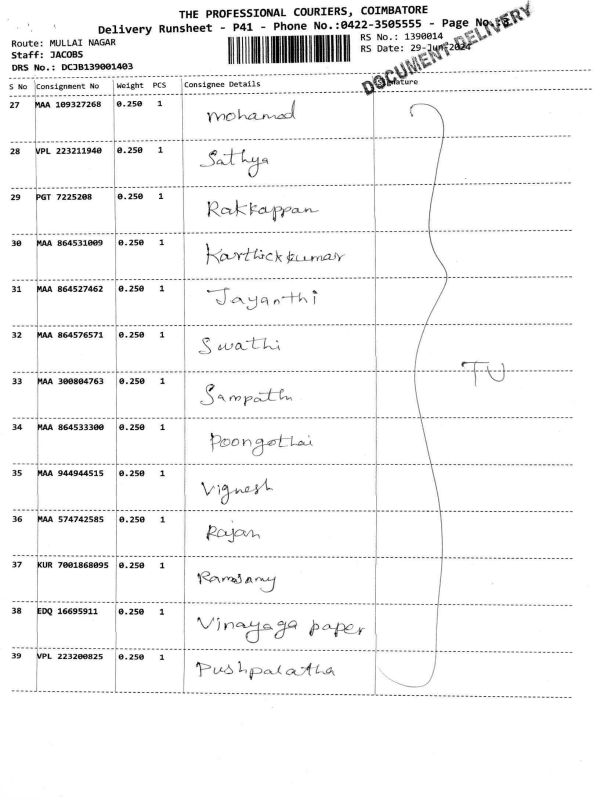 THE PROFESSIONAL COURIERS, COIMBATORE
Delivery Runsheet - P41 - Phone No.:0422-3505555 - Page No.:
Route: MULLAI NAGAR
RS No.: 1390014
Staff: JACOBS
RS Date: 29-Jun-2024
DRS No.: DCJB139001403
DOCUMENT DELIVERY
S No Consignment No Weight PCS Consignee Details Signature
27 MAA 109327268 0.250 1 mohamed
28 VPL 223211940 0.250 1 Sathya
29 PGT 7225208 0.250 1 Rakkappan
30 MAA 864531009 0.250 1 Karthickkumar
31 MAA 864527462 0.250 1 Jayanthi
32 MAA 864576571 0.250 1 Swathi
TU
33 MAA 300804763 0.250 1 Sampath
34 MAA 864533300 0.250 1 Poongothai
35 MAA 944944515 0.250 1 Vignesh
36 MAA 574742585 0.250 1 Rajan
37 KUR 7001868095 0.250 1 Ramsamy
38 EDQ 16695911 0.250 1 Vinayaga paper
39 VPL 223200825 0.250 1 Pushpalatha